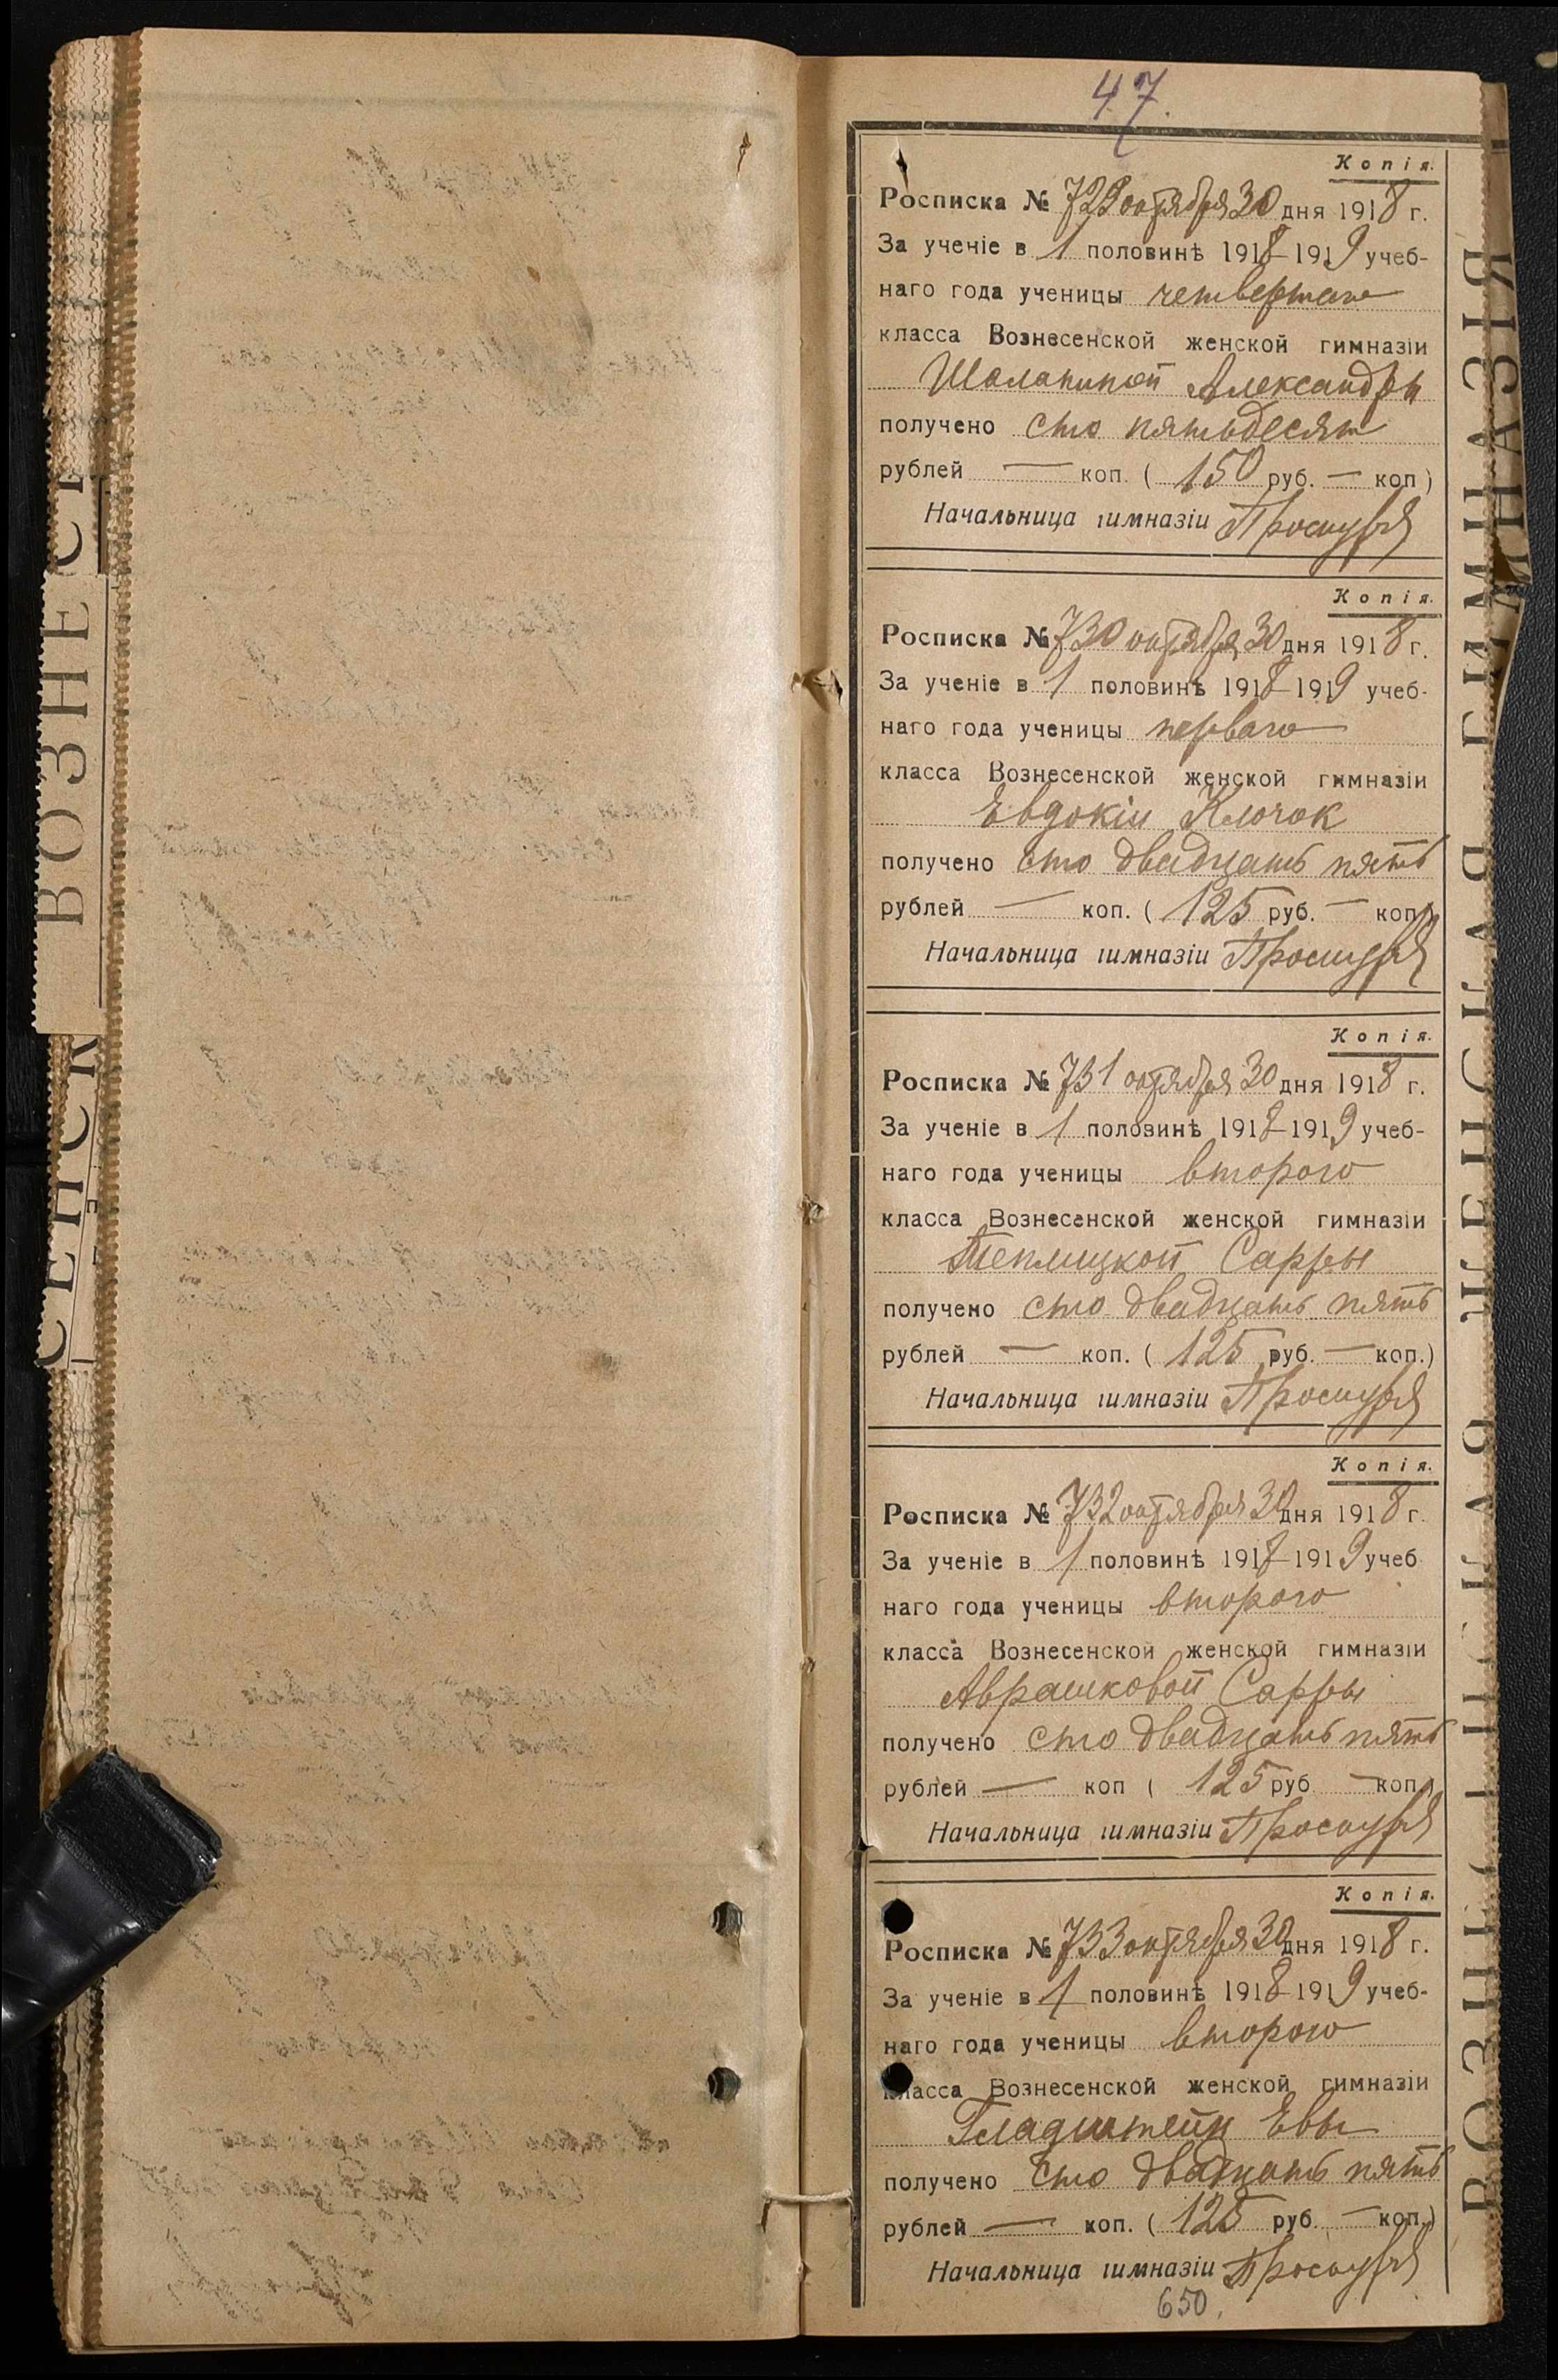 47.
Копія.
Росписка № 729 октября 30 дня 1918 г.
За ученіе в 1 половинѣ 1918-1919 учеб-
наго года ученицы четвертаго
класса Вознесенской женской гимназіи
Шалапиной Александры
получено сто пятьдесят
рублей — коп. ( 150 руб. — коп )
Начальница гимназіи
Копія.
Росписка № 730 октября 30 дня 1918 г.
За ученіе в 1 половинѣ 1918-1919 учеб-
наго года ученицы перваго
класса Вознесенской женской гимназіи
Евдокіи Клочок
получено сто двадцать пять
рублей — коп. ( 125 руб. — коп.)
Начальница гимназіи
Копія.
Росписка № 731 октября 30 дня 1918 г.
За ученіе в 1 половинѣ 1918-1919 учеб-
наго года ученицы второго
класса Вознесенской женской гимназіи
Теплицкой Сарры
получено сто двадцать пять
рублей — коп. ( 125 руб. — коп.)
Начальница гимназіи
Копія.
Росписка № 732 октября 30 дня 1918 г.
За ученіе в 1 половинѣ 1918-1919 учеб
наго года ученицы второго
класса Вознесенской женской гимназіи
Аврашковой Сарры
получено сто двадцать пять
рублей — коп ( 125 руб — коп.)
Начальница гимназіи
Копія.
Росписка № 733 октября 30 дня 1918 г.
За ученіе в 1 половинѣ 1918-1919 учеб-
наго года ученицы второго
класса Вознесенской женской гимназіи
Гладштейн Евы
получено сто двадцать пять
рублей — коп. ( 125 руб. — коп.)
Начальница гимназіи
650.